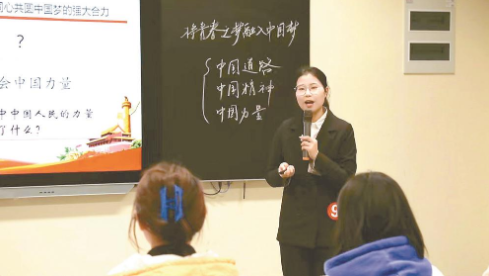 同心共圆中国梦的强大合力
？
会中国力量
中中国人民的力量
了什么？
将青春之梦融入中国梦
中国道路
中国精神
中国力量
9